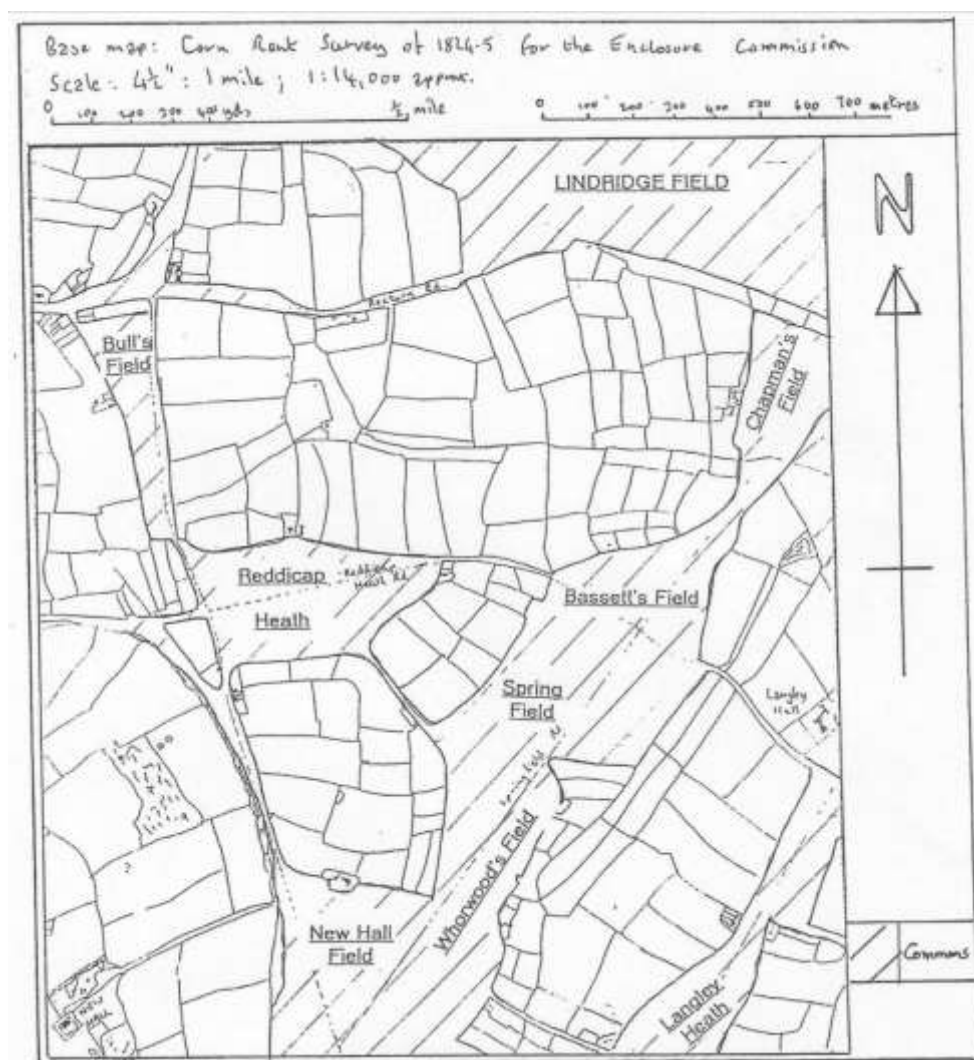 Base map: Corn Rent Survey of 1824-5 for the Enclosure Commission
Scale: 4½" : 1 mile ; 1:14,000 approx.
0 100 200 300 400 yds ½ mile
0 100 200 300 400 500 600 700 metres
LINDRIDGE FIELD
N
Rectory Rd
Bull's
Field
Chapman's
Field
Reddicap
Reddicap
Heath Rd
Heath
Bassett's Field
Spring
Field
Langley
Hall
Springfield Rd
Whorwood's Field
New Hall
Field
Commons
NEW
HALL
Langley
Heath